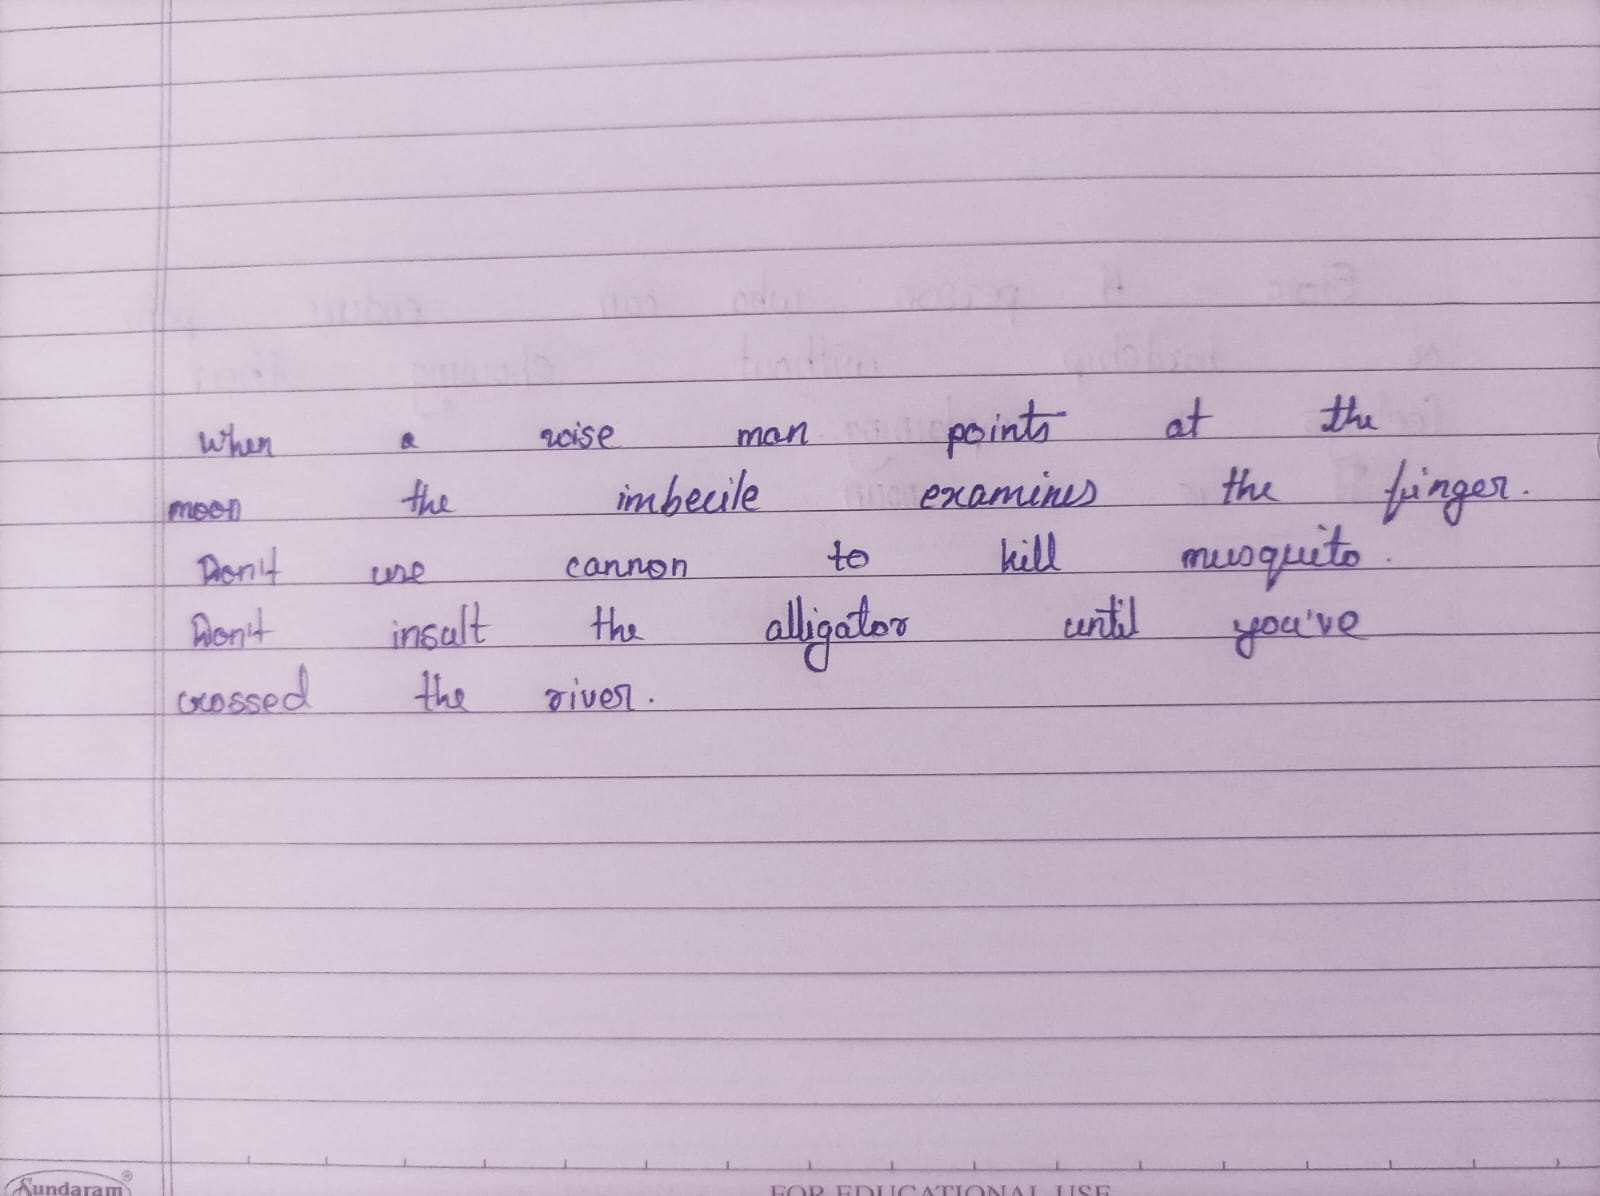 When a wise man points at the
moon the imbecile examines the finger.
Don't use cannon to kill musquito.
Don't insult the alligator until you've
crossed the river.
Sundaram®
FOR EDUCATIONAL USE